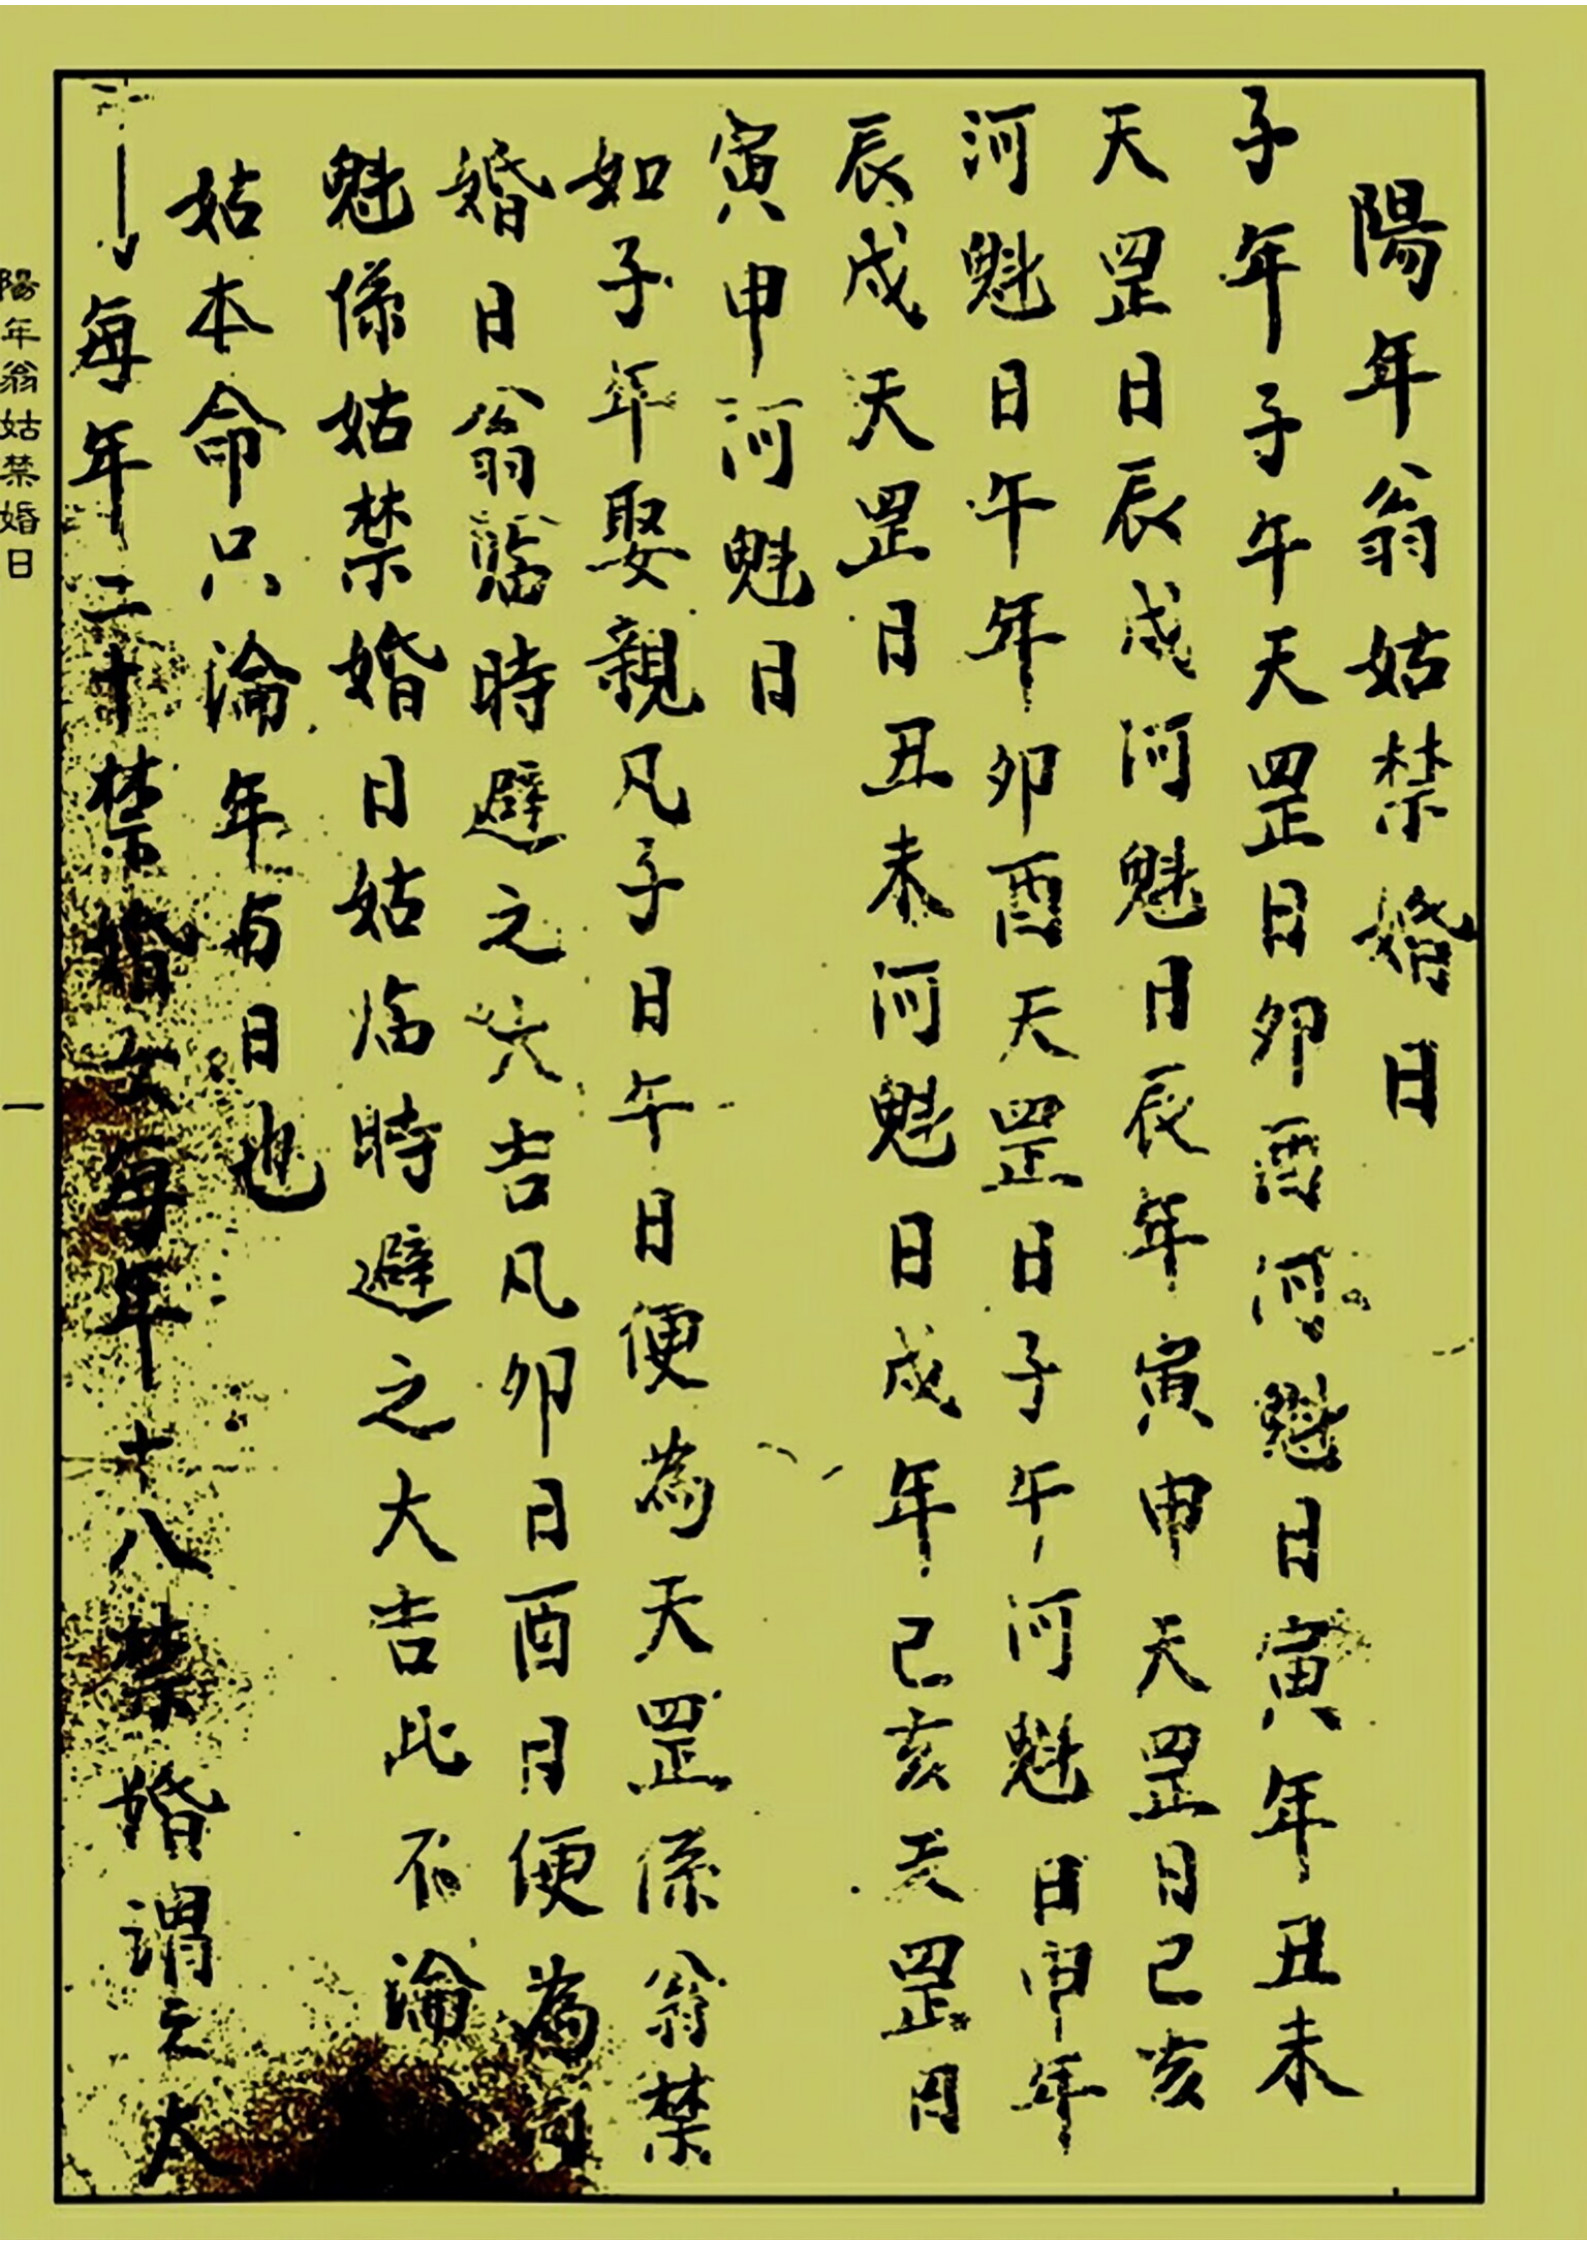 陽年翁姑禁婚日
子年子午天罡日卯酉河魁日寅年丑未
天罡日辰戌河魁日辰年寅申天罡日己亥
河魁日午年卯酉天罡日子午河魁日申年
辰戌天罡日丑未河魁日戌年己亥天罡日
寅申河魁日
如子年娶親凡子日午日便為天罡係翁禁
婚日翁臨時避之大吉凡卯日酉日便為河
魁係姑禁婚日姑临時避之大吉此不論
姑本命只淪年与日也
每年二十禁婚女每年十八禁婚謂之大
陽年翁姑禁婚日
一